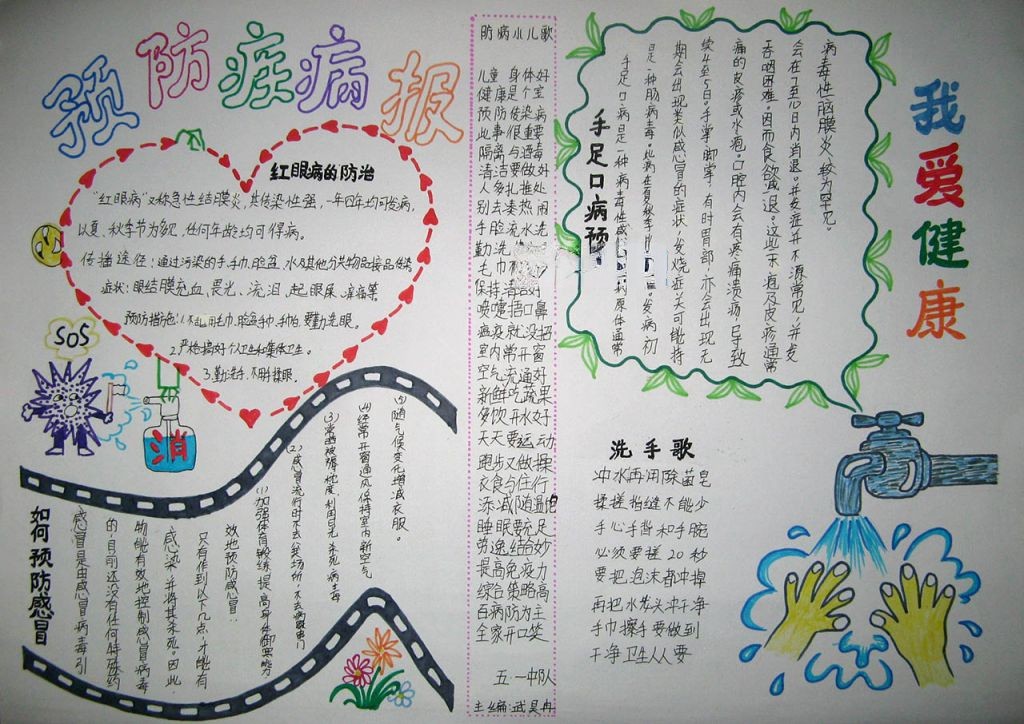 预防疾病报
红眼病的防治
“红眼病”又称急性结膜炎，其传染性强，一年四年均可发病，
以夏、秋季节为多见，任何年龄均可得病。
传播途径：通过污染的手、手巾、脸盆、水及其他公共物品接品传染
症状：眼结膜充血、畏光、流泪、起眼屎、
预防措施：1.不
2.严格搞好个人卫生和集体卫生。
3.勤洗手、不用手揉眼。
SOS
消
如何预防感冒
感冒是由感冒病毒引
的，目前还没有任何特殊药
物能有效地控制感冒病毒
感染，并将其杀死。因此
只有作到以下几点，才能有
效地预防感冒：
(1)加强体育锻炼提高身体御寒能力
(2)感冒流行时不去公共场所，不去病家串门
(3)常晒被褥、枕度，利用日光杀死病毒
(4)经常开窗通风保持室内新空气
(5)随气候变化增减衣服。
防病小儿歌
儿童身体好
健康是个宝
预防传染病
此事很重要
隔离与消毒
清洁要做好
人多扎推处
别去凑热闹
手脸流水洗
勤洗
毛巾
保持清
咳嚏捂口鼻
瘟疫就没招
室内常开窗
空气流通好
新鲜吃蔬果
多饮开水好
天天要运动
跑步又做操
衣食与住行
添减随温饱
睡眠要充足
劳逸结合妙
提高免疫力
综合策略高
百病防为主
全家开口笑
五·一中队
主编：武昊冉
手足口病预
手足口病是一种病毒性感
病原体通常
是一种肠病毒。此病在夏秋季
发病初
期会出现类似感冒的症状，发烧症关可能持
续4至5日。手掌、脚掌，有时胃部，亦会出现无
痛的皮疹或水疱。口腔内会有疼痛溃疡，导致
吞咽困难，因而食欲减退。这些水疱及皮疹通常
会在7至10日内消退。并发症并不源常见，并发
病毒性脑膜炎，较为罕见。
我爱健康
洗手歌
冲水再用除菌皂
揉搓指缝不能少
手心手背和手腕
必须要搓20秒
要把泡沫都冲掉
再把水龙头冲干净
手巾擦手要做到
干净卫生人人要